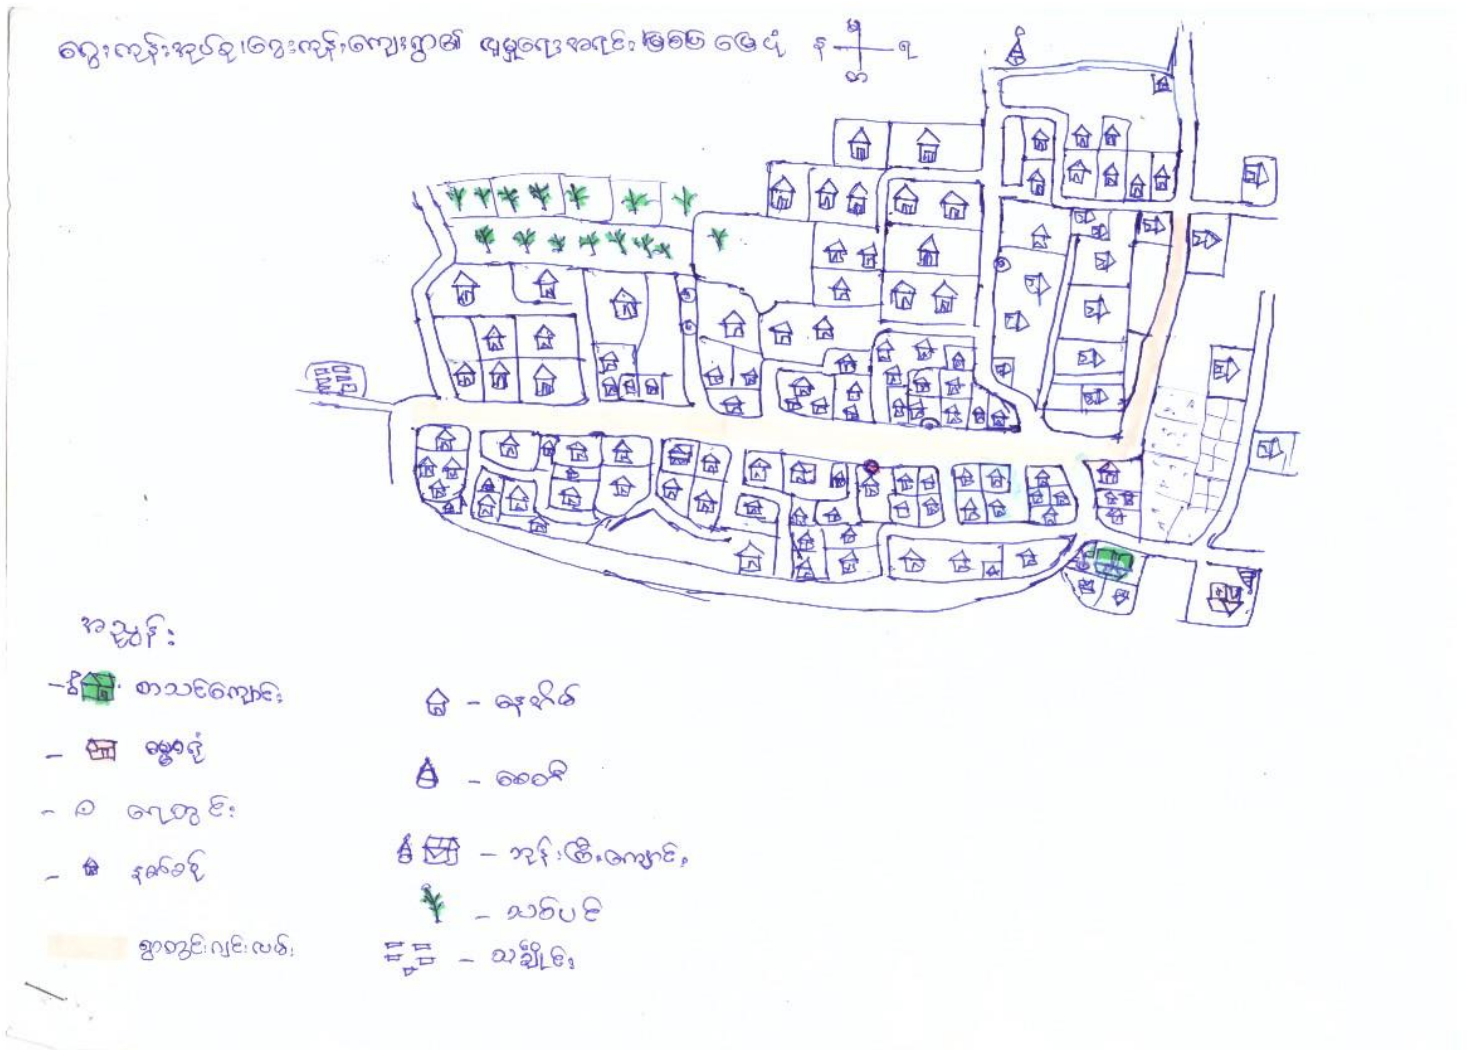 ဂွေးကုန်းအုပ်စု၊ဂွေးကုန်းကျေးရွာ၏ လူမှုရေးအရင်းအမြစ် မြေပုံ
မ
န ရ
တ
အညွှန်း
- စာသင်ကျောင်း
- ဓမ္မာရုံ
- ရေတွင်း
- နတ်စင်
ရွာတွင်းလမ်း
- နေအိမ်
- စေတီ
- ဘုန်းကြီးကျောင်း
- သစ်ပင်
- သင်္ချိုင်း